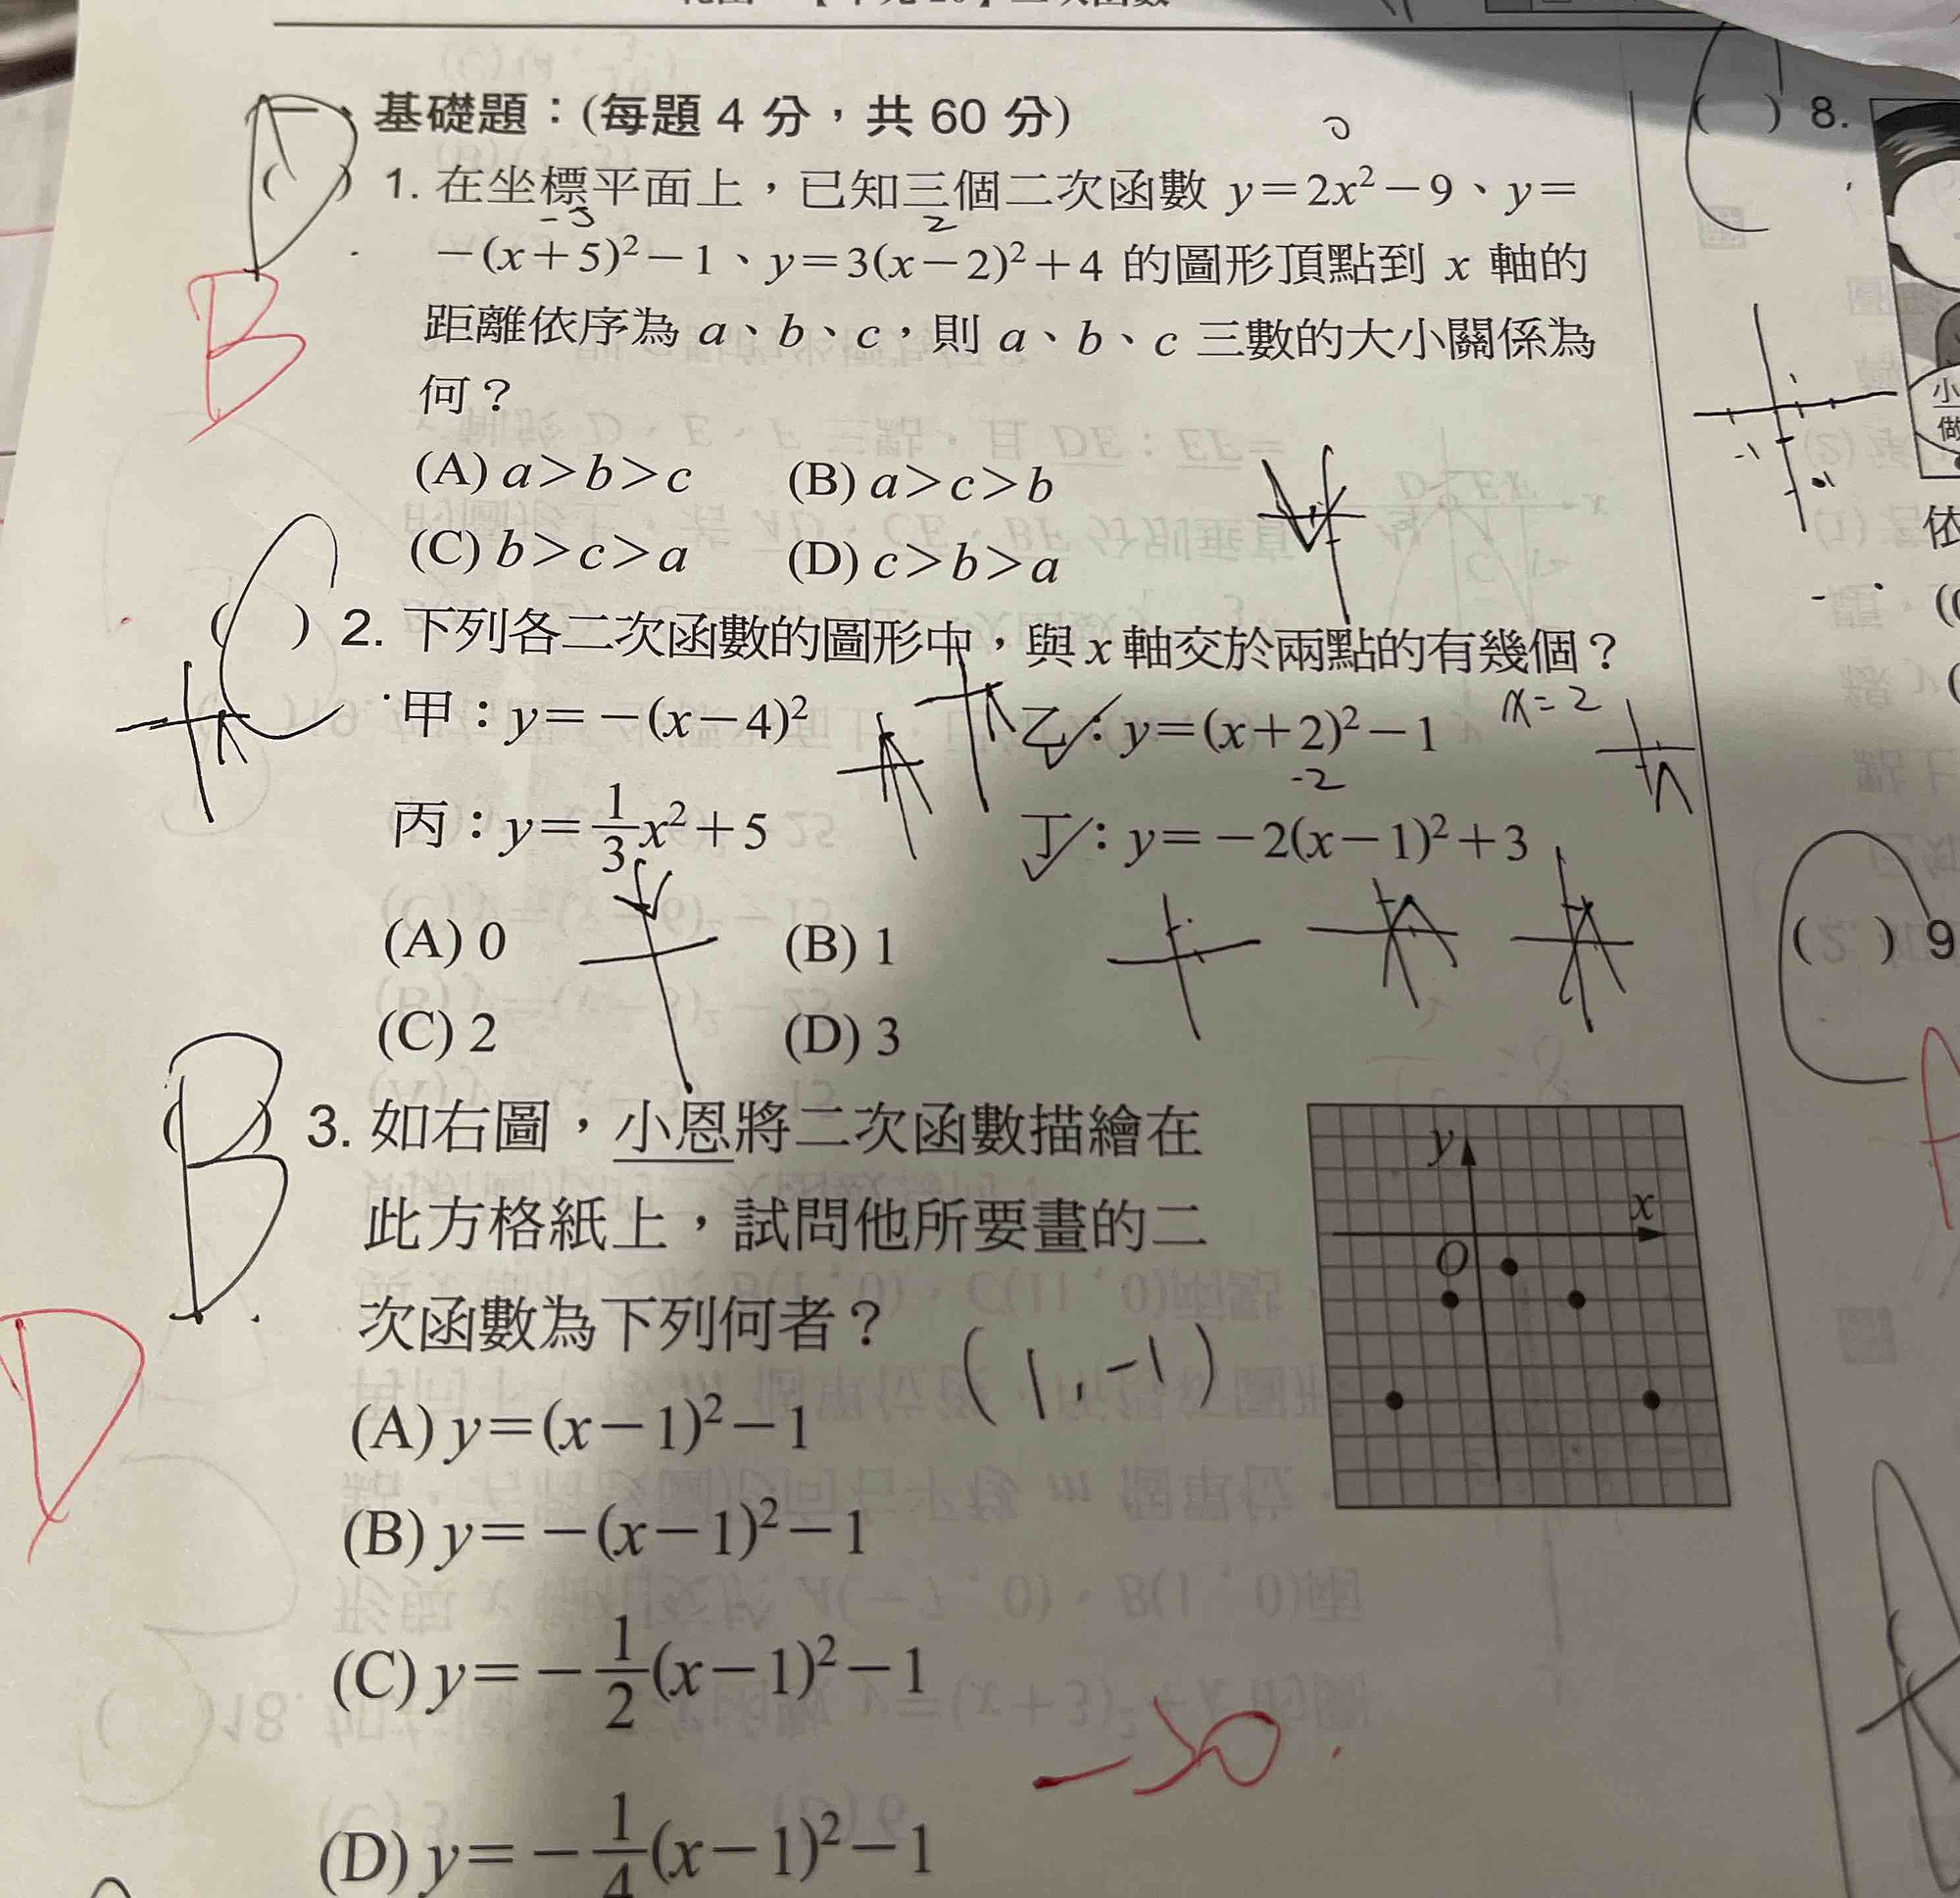 基礎題：(每題 4 分，共 60 分)
D
B
( ) 1. 在坐標平面上，已知三個二次函數 y＝2x²－9、y＝
－(x＋5)²－1、y＝3(x－2)²＋4 的圖形頂點到 x 軸的
距離依序為 a、b、c，則 a、b、c 三數的大小關係為
何？
(A) a＞b＞c (B) a＞c＞b
(C) b＞c＞a (D) c＞b＞a
C
( ) 2. 下列各二次函數的圖形中，與 x 軸交於兩點的有幾個？
甲：y＝－(x－4)² 乙：y＝(x＋2)²－1 x=2
-2
丙：y＝1/3x²＋5 丁：y＝－2(x－1)²＋3
(A) 0 (B) 1
(C) 2 (D) 3
B
D
( ) 3. 如右圖，小恩將二次函數描繪在
此方格紙上，試問他所要畫的二
次函數為下列何者？
(1,-1)
y
x
O
(A) y＝(x－1)²－1
(B) y＝－(x－1)²－1
(C) y＝－1/2(x－1)²－1
(D) y＝－1/4(x－1)²－1
( ) 8.
小
做
依
( ) 9